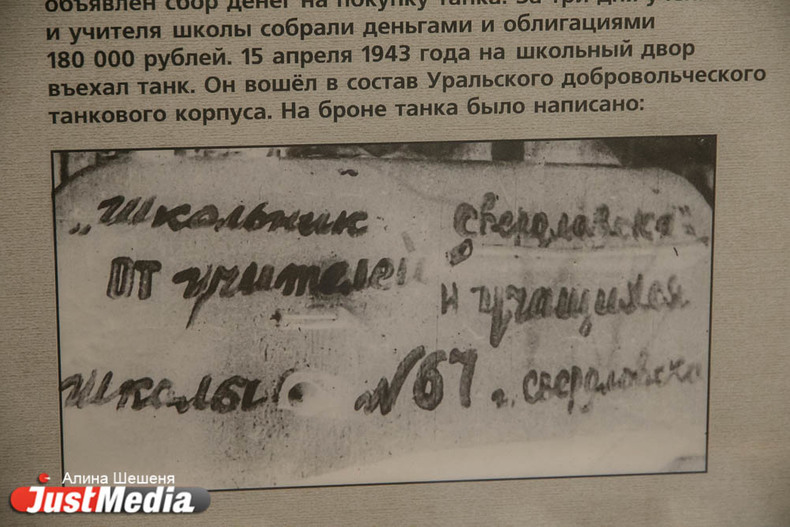 объявлен сбор денег на покупку танка. За три дня
и учителя школы собрали деньгами и облигациями
180 000 рублей. 15 апреля 1943 года на школьный двор
въехал танк. Он вошёл в состав Уральского добровольческого
танкового корпуса. На броне танка было написано:
„Школьник Свердловска"
от учителей и учащихся
школы №67 г. Свердловска
Алина Шешеня
JustMedia.